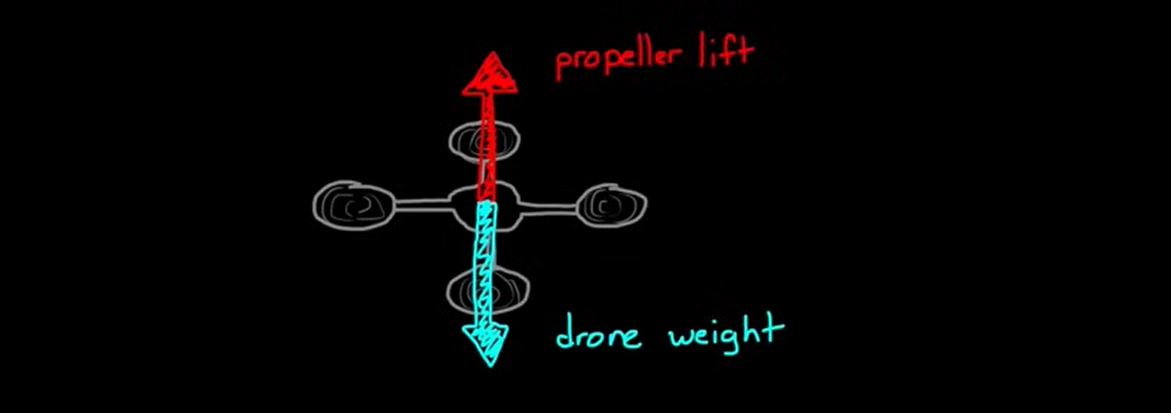 propeller lift
drone weight